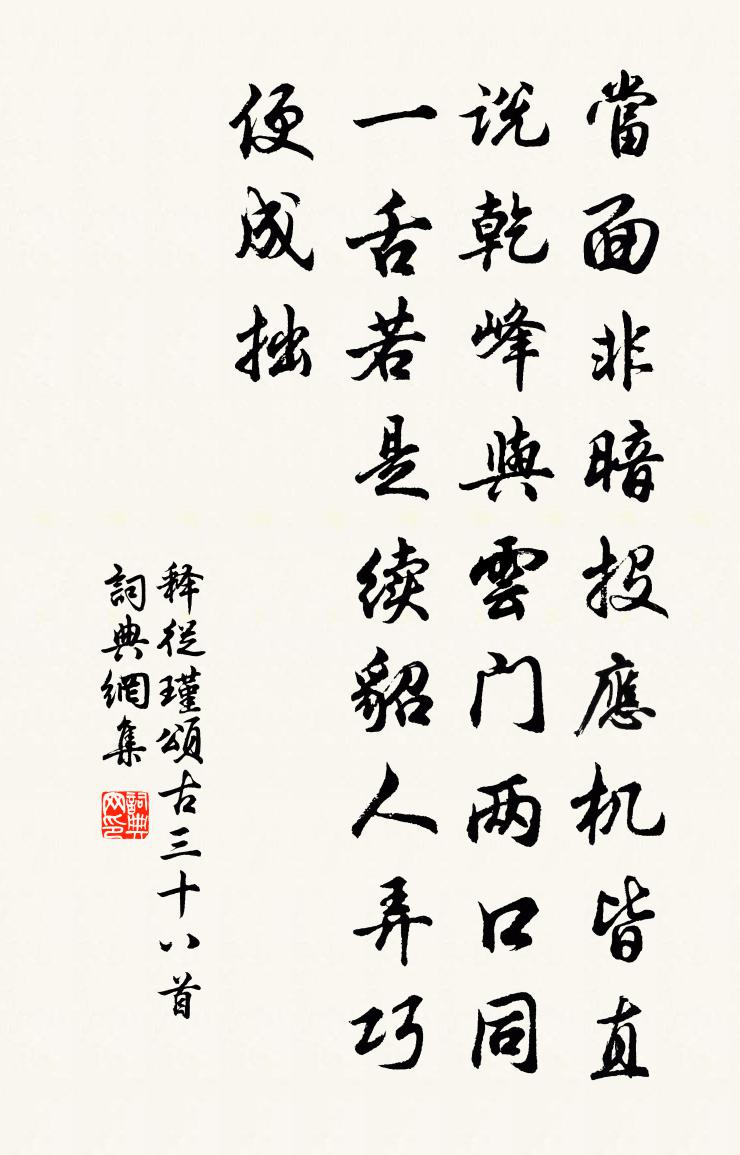 當面非暗投應机皆直
说乾峰與雲门两口同
一舌若是续貂人弄巧
便成拙
释從瑾頌古三十八首
詞典網集
詞典网印